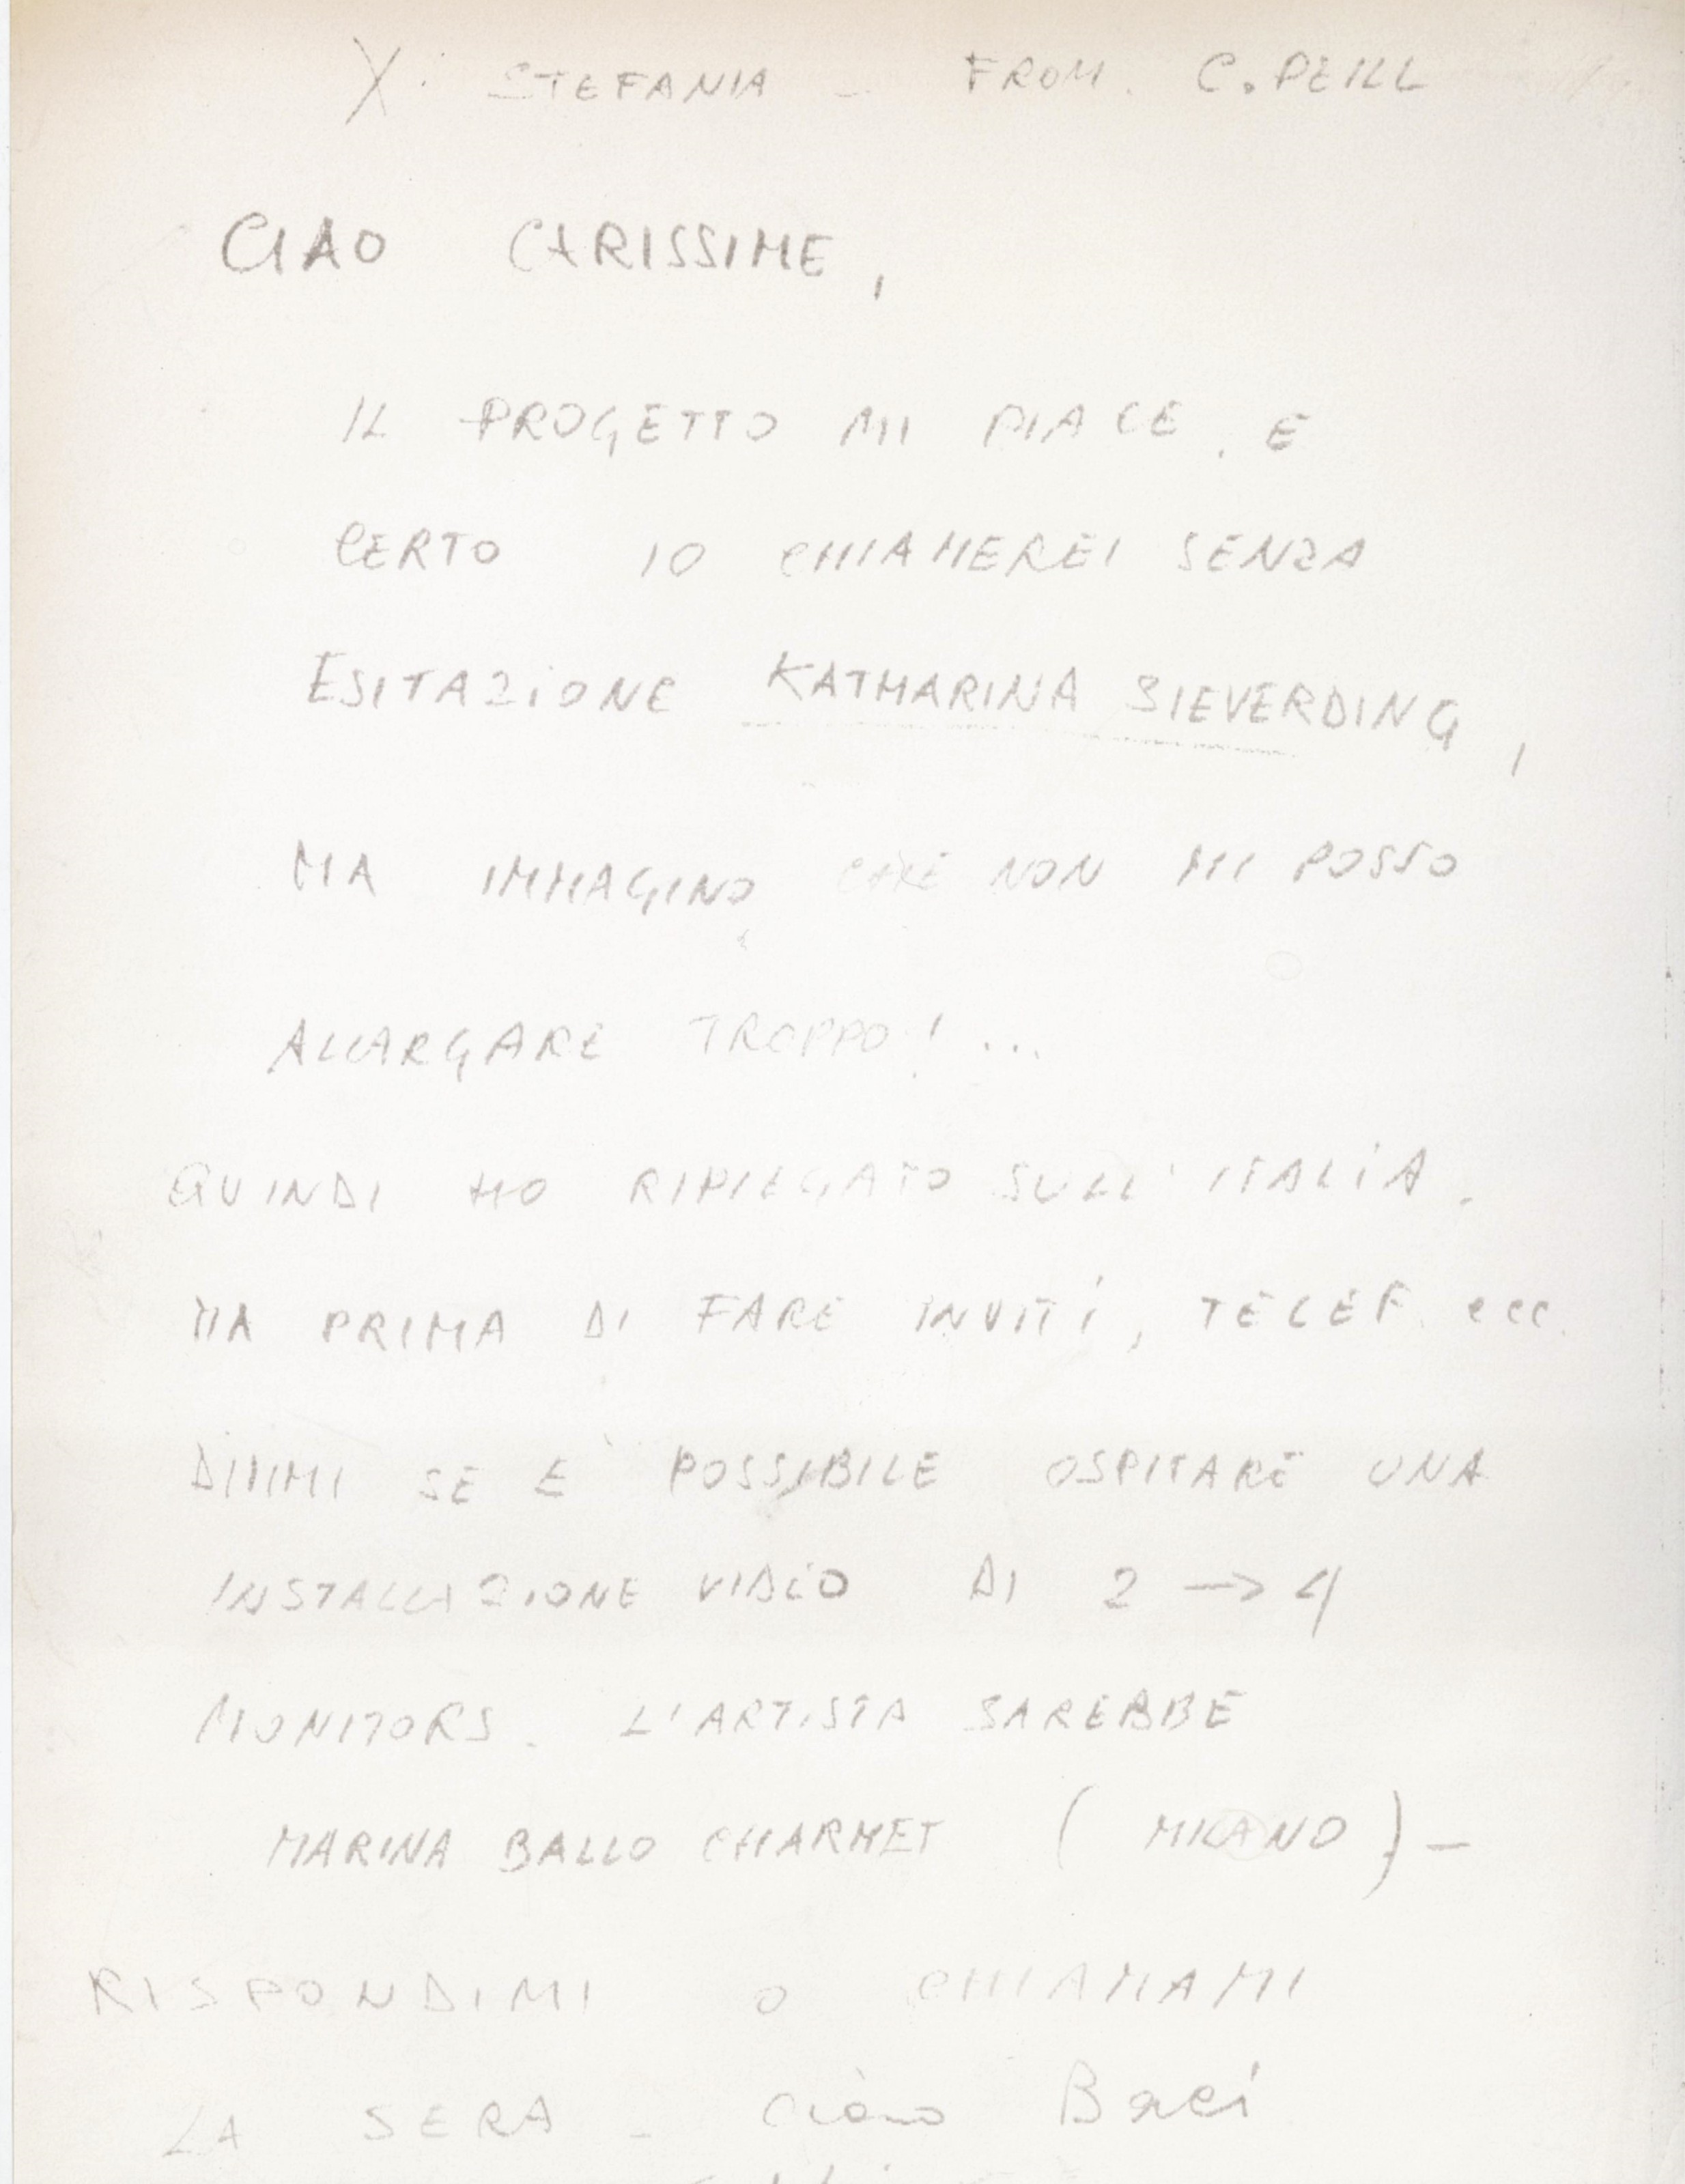 X: STEFANIA - FROM. C. PEILL
CIAO CARISSIME,
IL PROGETTO MI PIACE. E
CERTO IO CHIAMEREI SENZA
ESITAZIONE KATHARINA SIEVERDING,
MA IMMAGINO CHE NON MI POSSO
ALLARGARE TROPPO! ...
QUINDI HO RIPIEGATO SULL'ITALIA.
MA PRIMA DI FARE INVITI, TELEF. ecc.
DIMMI SE È POSSIBILE OSPITARE UNA
INSTALLAZIONE VIDEO DI 2 → 4
MONITORS. L'ARTISTA SAREBBE
MARINA BALLO CHARMET (MILANO) -
RISPONDIMI O CHIAMAMI
LA SERA - Ciao Baci